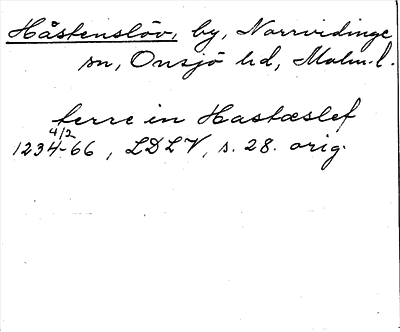 Håstenslöv, by, Norrvidinge
sn, Onsjö hd, Malm.l.
terre in Hastæslef
4/2
1234-66, LDLV, s. 28. orig.